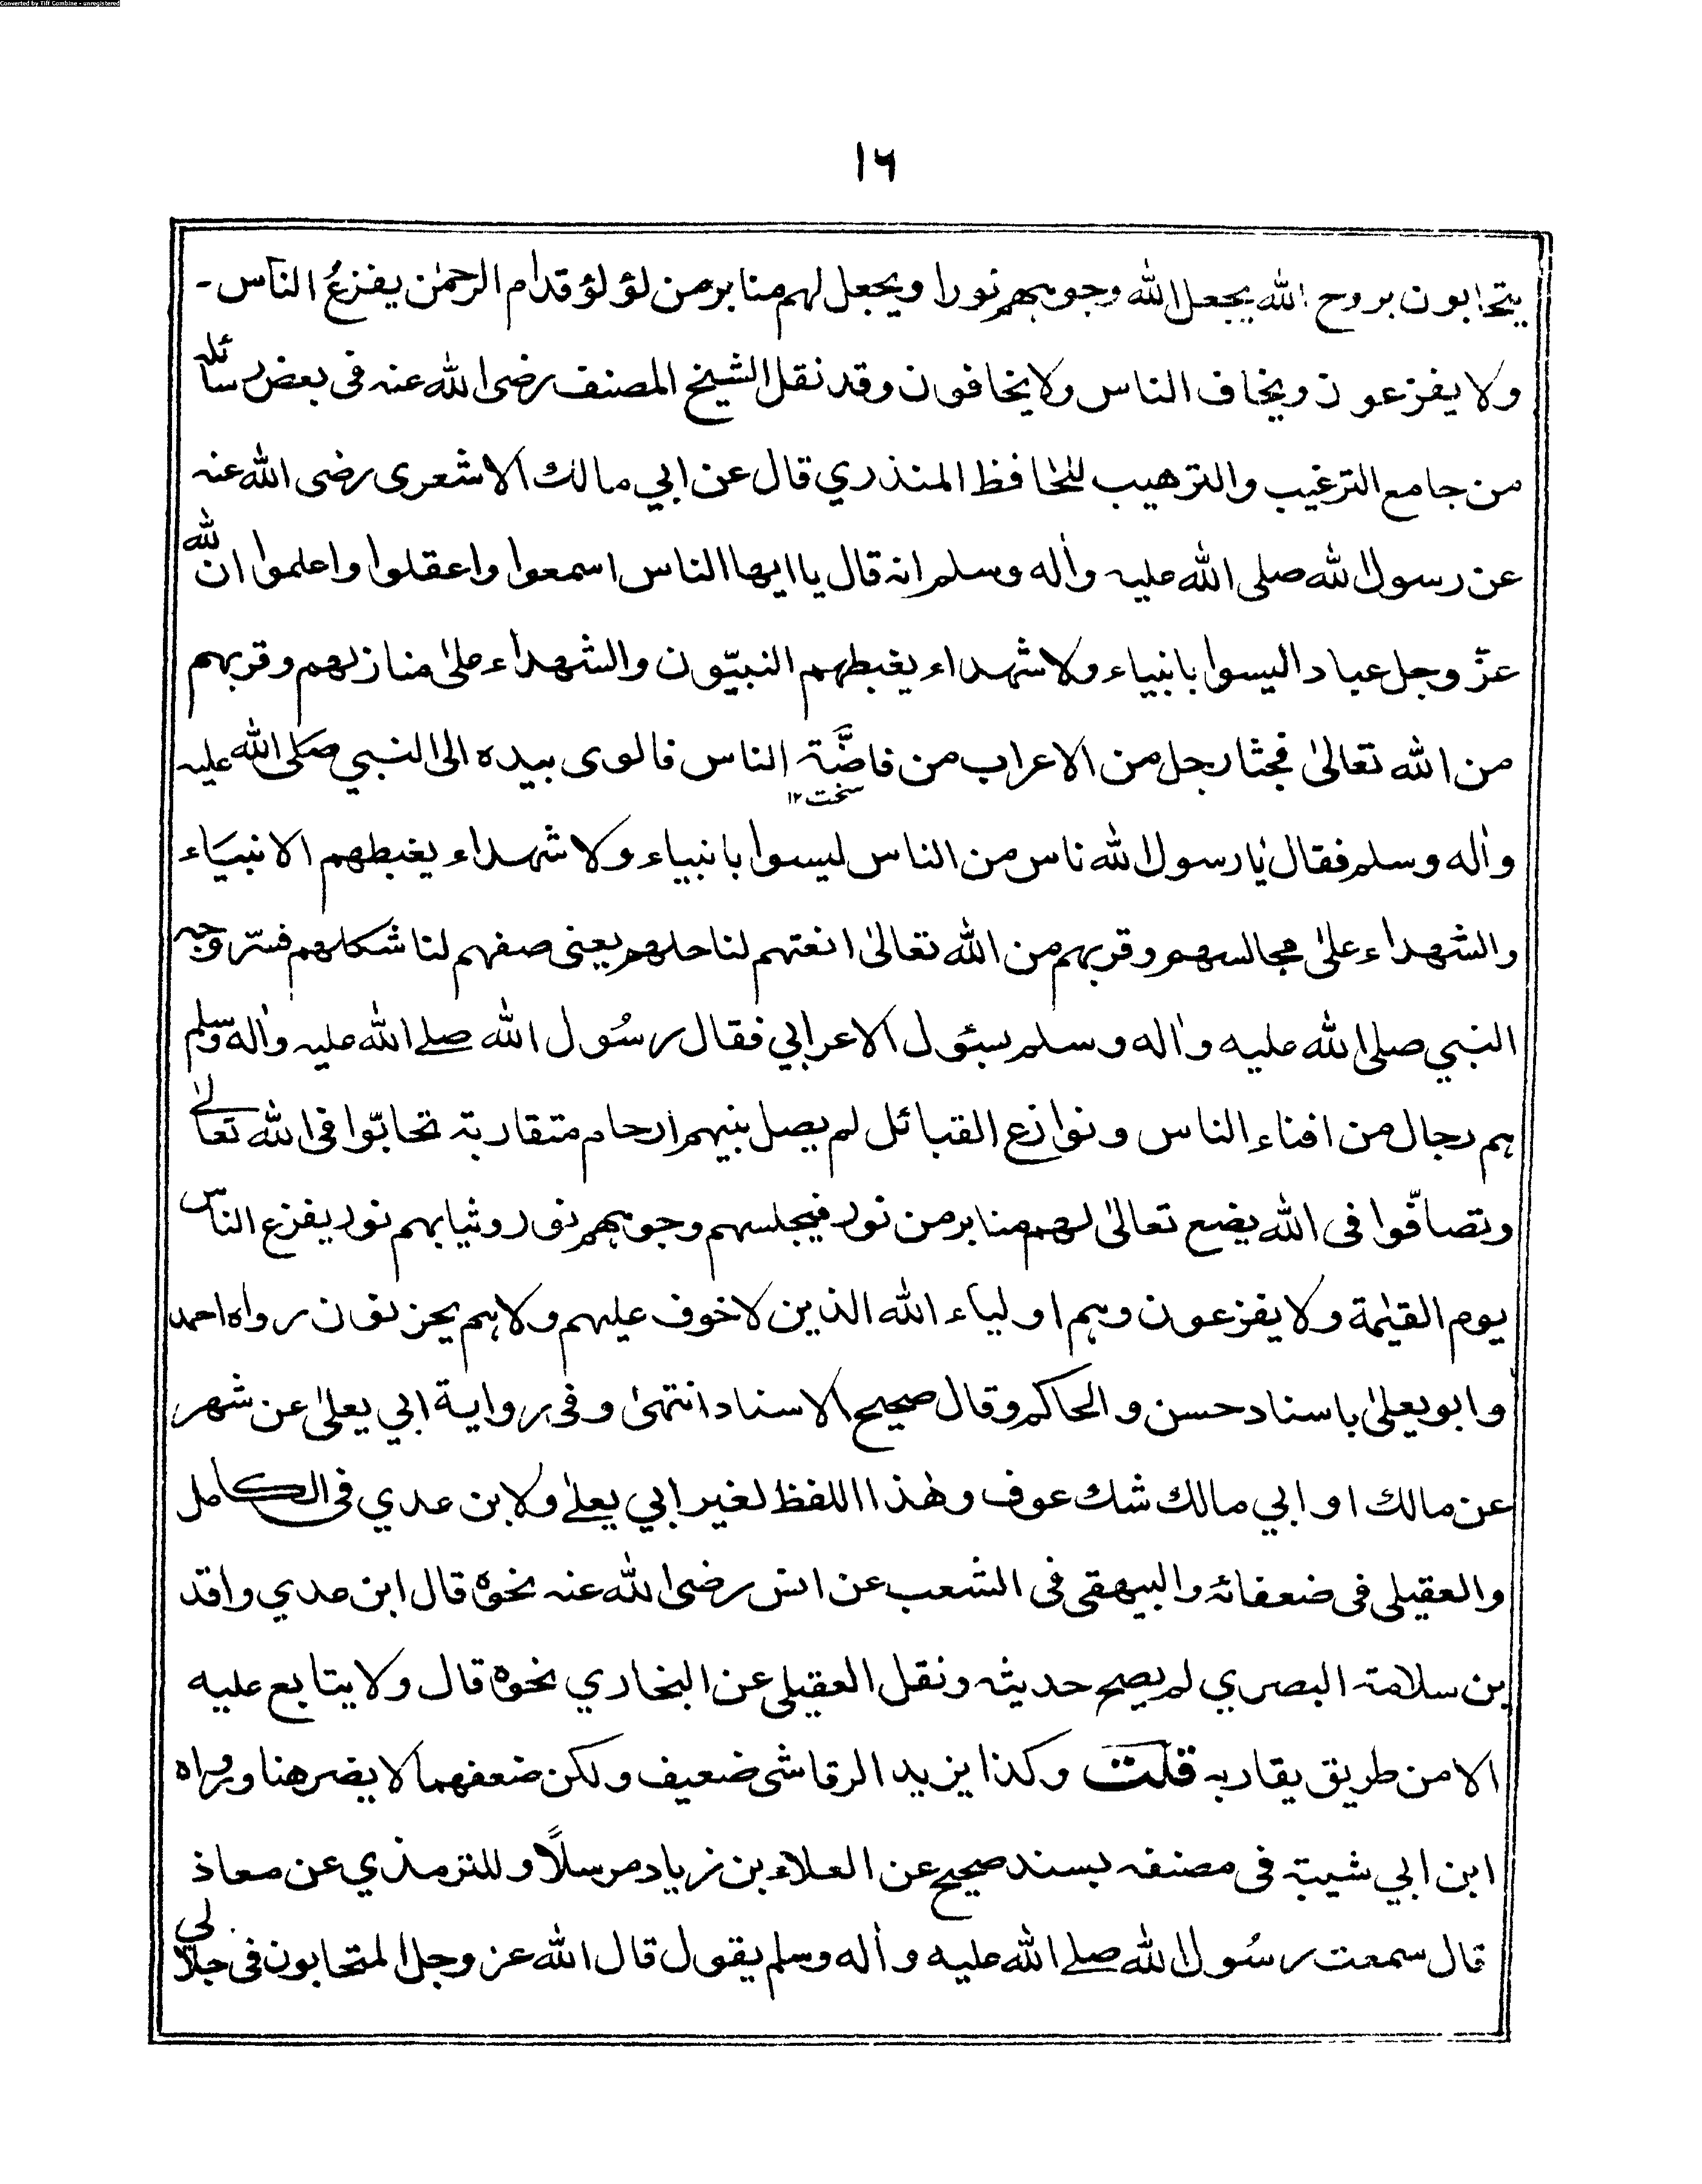 Converted by Tiff Combine - unregistered
١٦
يتحابون بروح الله يجعل الله وجوههم نورا ويجعل لهم منابر من لؤلؤ قدام الرحمٰن يفزعُ الناس ـ
ولا يفزعون ويخاف الناس ولا يخافون وقد نقل الشيخ المصنف رضى الله عنه فى بعض رسائله
من جامع الترغيب والترهيب للحافظ المنذري قال عن ابي مالك الاشعرى رضى الله عنه
عن رسول الله صلى الله عليه واٰله وسلم انه قال يا ايها الناس اسمعوا واعقلوا واعلموا ان لله
عزّ وجل عبادا ليسوا بانبياء ولا شهداء يغبطهم النبيّون والشهداء علىٰ منازلهم وقربهم
من الله تعالىٰ فجثا رجل من الاعراب من قاضَّة الناس فالوى بيده الى النبي صلى الله عليه
سخت ١٢
واٰله وسلم فقال يا رسول الله ناس من الناس ليسوا بانبياء ولا شهداء يغبطهم الانبياء
والشهداء علىٰ مجالسهم وقربهم من الله تعالىٰ انعتهم لنا حلهم يعنى صفهم لنا شكلهم فسّر وجه
النبي صلى الله عليه واٰله وسلم بسئول الاعرابي فقال رسُول الله صلے الله عليه واٰله وسلم
هم رجال من افناء الناس ونوازع القبائل لم يصل بينهم ارحام متقاربة تحابّوا فى الله تعالےٰ
وتصافّوا فى الله يضع تعالىٰ لهم منابر من نور فيجلسهم وجوههم نور وثيابهم نور يفزع الناس
يوم القيٰمة ولا يفزعون وهم اولياء الله الذين لا خوف عليهم ولا هم يحزنون رواه احمد
وابو يعلىٰ باسناد حسن والحاكم وقال صحيح الاسناد انتهىٰ وفى رواية ابي يعلىٰ عن شهر
عن مالك او ابي مالك شك عوف وهٰذا اللفظ لغير ابي يعلےٰ ولابن عدي فى الكامل
والعقيلى فى ضعفائه والبيهقى فى الشعب عن انس رضى الله عنه نحوه قال ابن عدي واقد
بن سلامة البصري لم يصح حديثه ونقل العقيلى عن البخاري نحوه قال ولا يتابع عليه
الا من طريق يقاربه قلت وكذا يزيد الرقاشى ضعيف ولكن ضعفهما لا يضر هنا ورواه
ابن ابي شيبة فى مصنفه بسند صحيح عن العلاء بن زياد مرسلًا وللترمذي عن معاذ
قال سمعت رسُول الله صلے الله عليه واٰله وسلم يقول قال الله عز وجل المتحابون فى جلالي